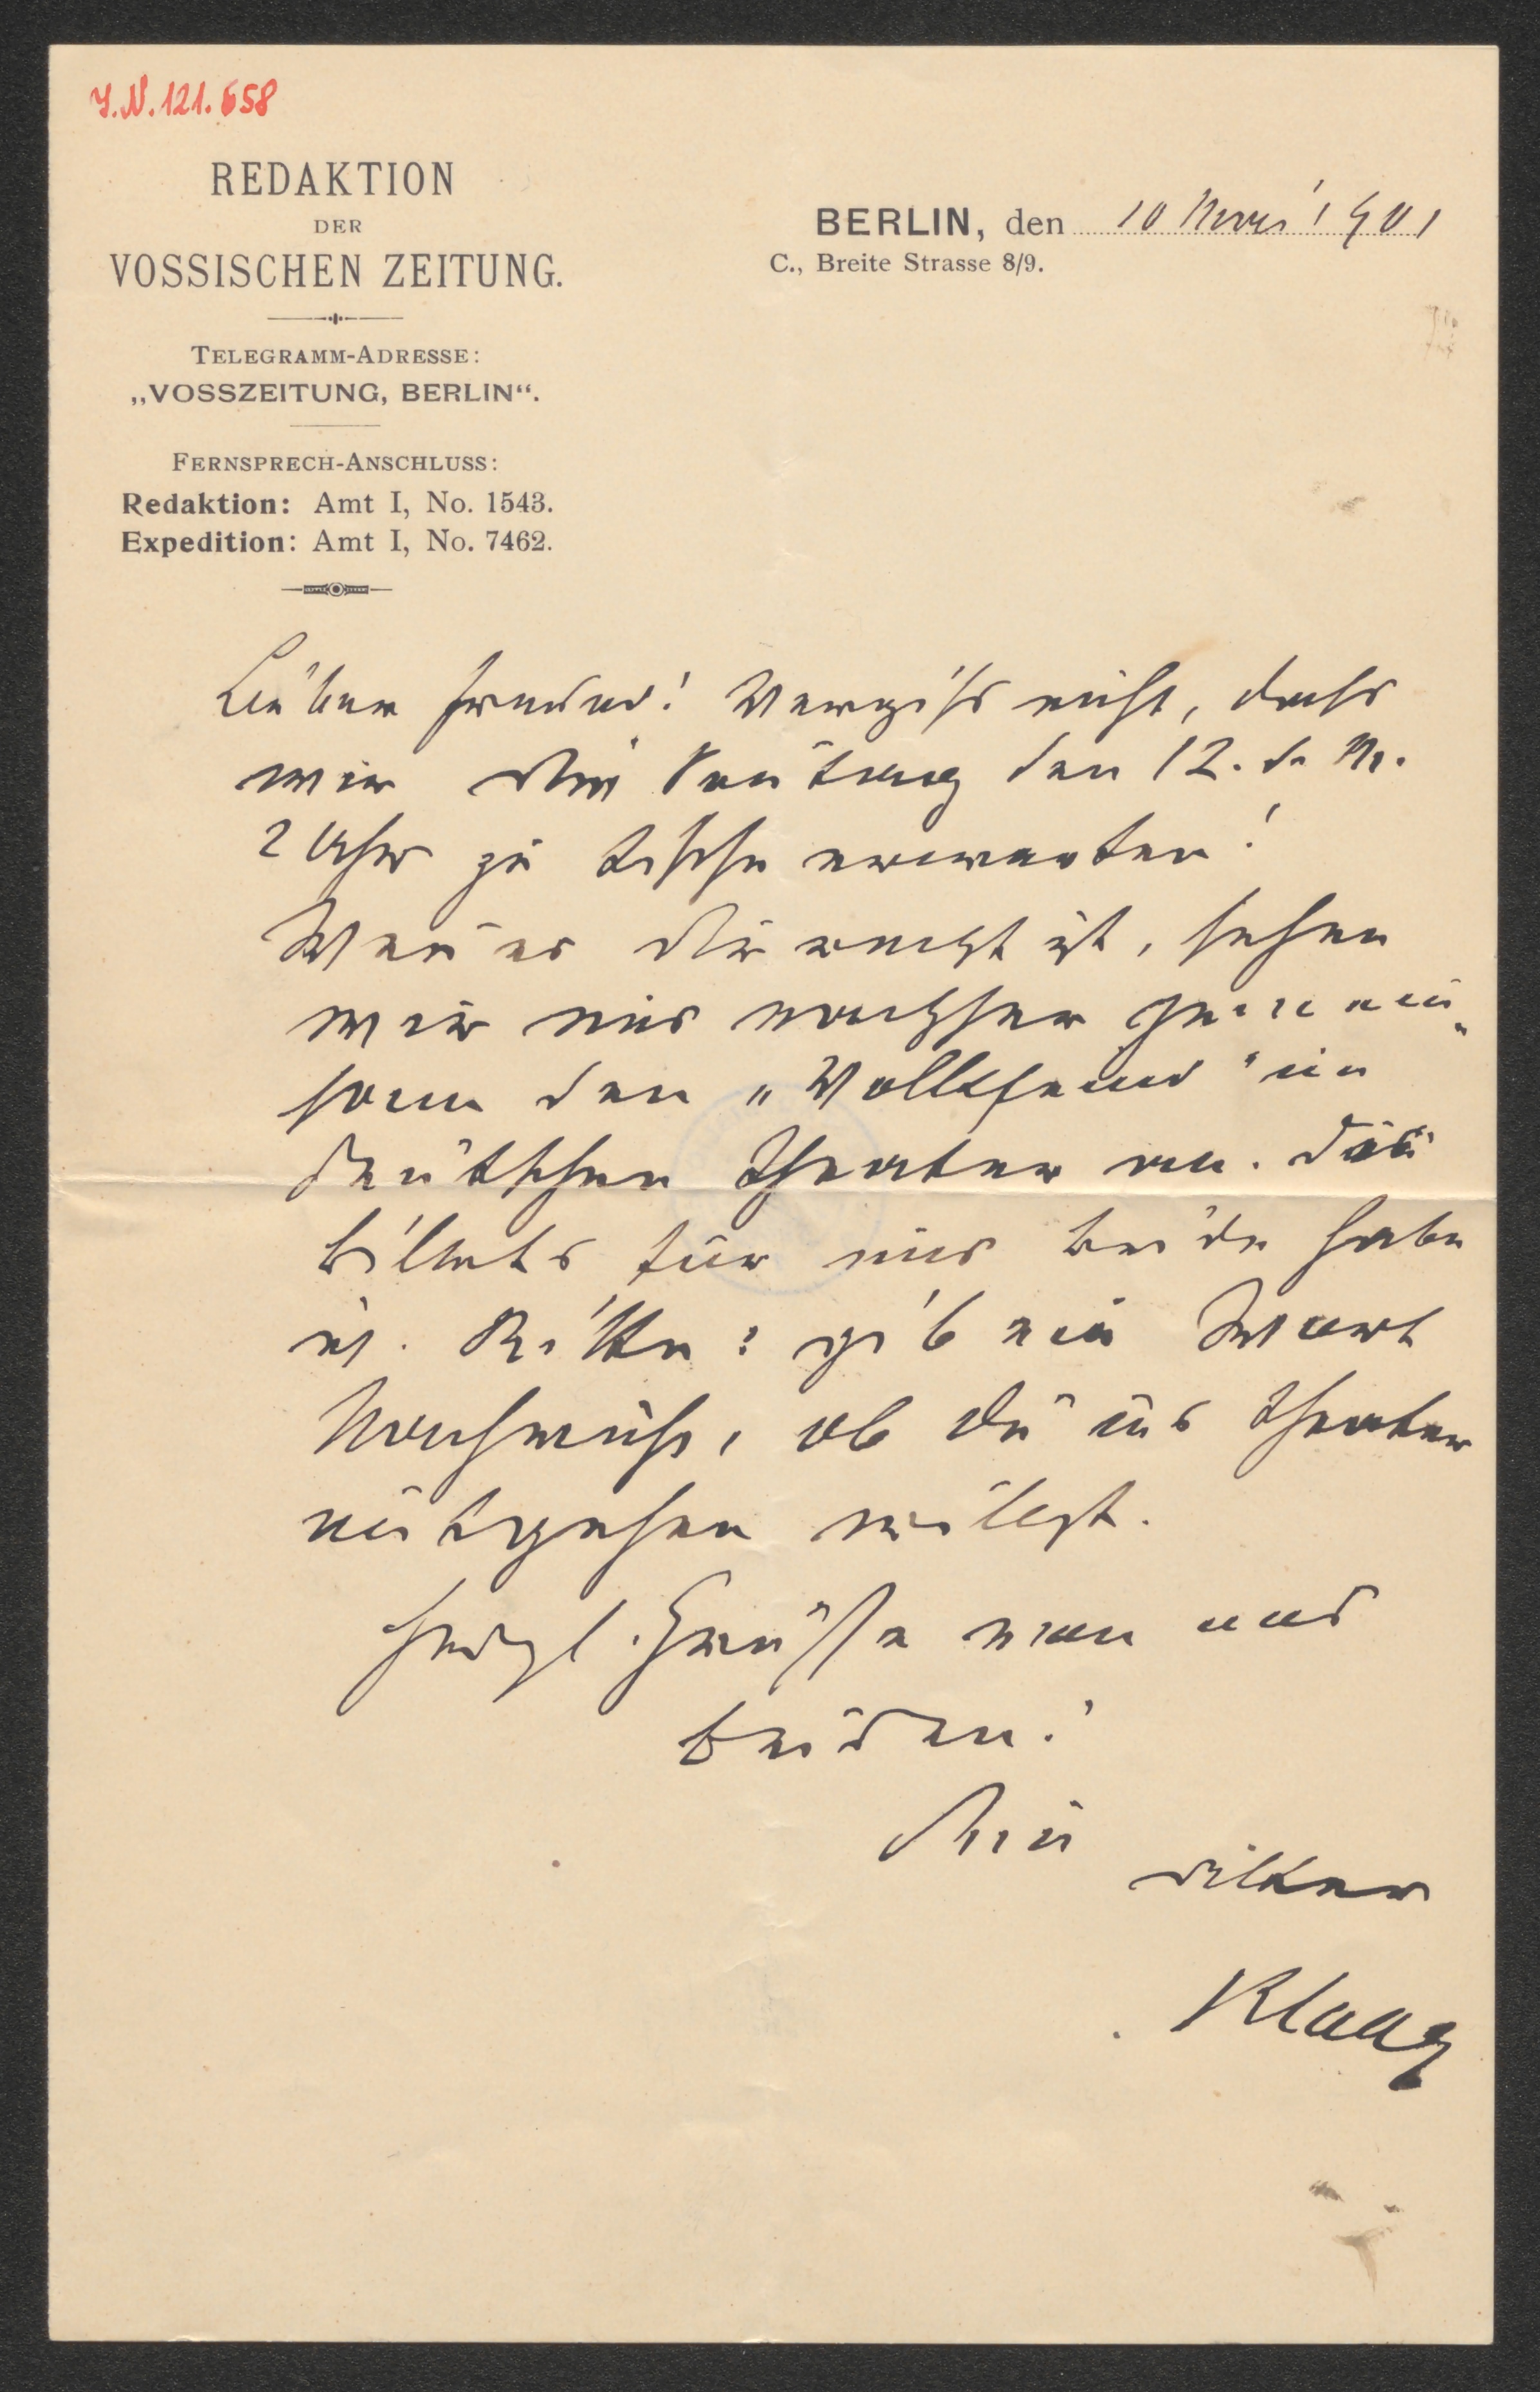 J.N. 121.658
REDAKTION
DER
VOSSISCHEN ZEITUNG.
TELEGRAMM-ADRESSE:
„VOSSZEITUNG, BERLIN“.
FERNSPRECH-ANSCHLUSS:
Redaktion: Amt I, No. 1543.
Expedition: Amt I, No. 7462.
BERLIN, den 10 Mai 1901
C., Breite Strasse 8/9.
Lieber Freund! Vergiß nicht, daß
wir Dich Sonntag den 12. d. M.
2 Uhr zu Tische erwarten!
Wenn es Dir recht ist, sehen
wir uns nachher gemein„
sam den „Volksfeind“ im
Deutschen Theater an. Die
Billets für uns beide habe
ich. Bitte: gib ein Wort
Nachricht, ob Du ins Theater
mitgehen willst.
Herzl. Grüße von uns
beiden!
Dein
alter
Klaar